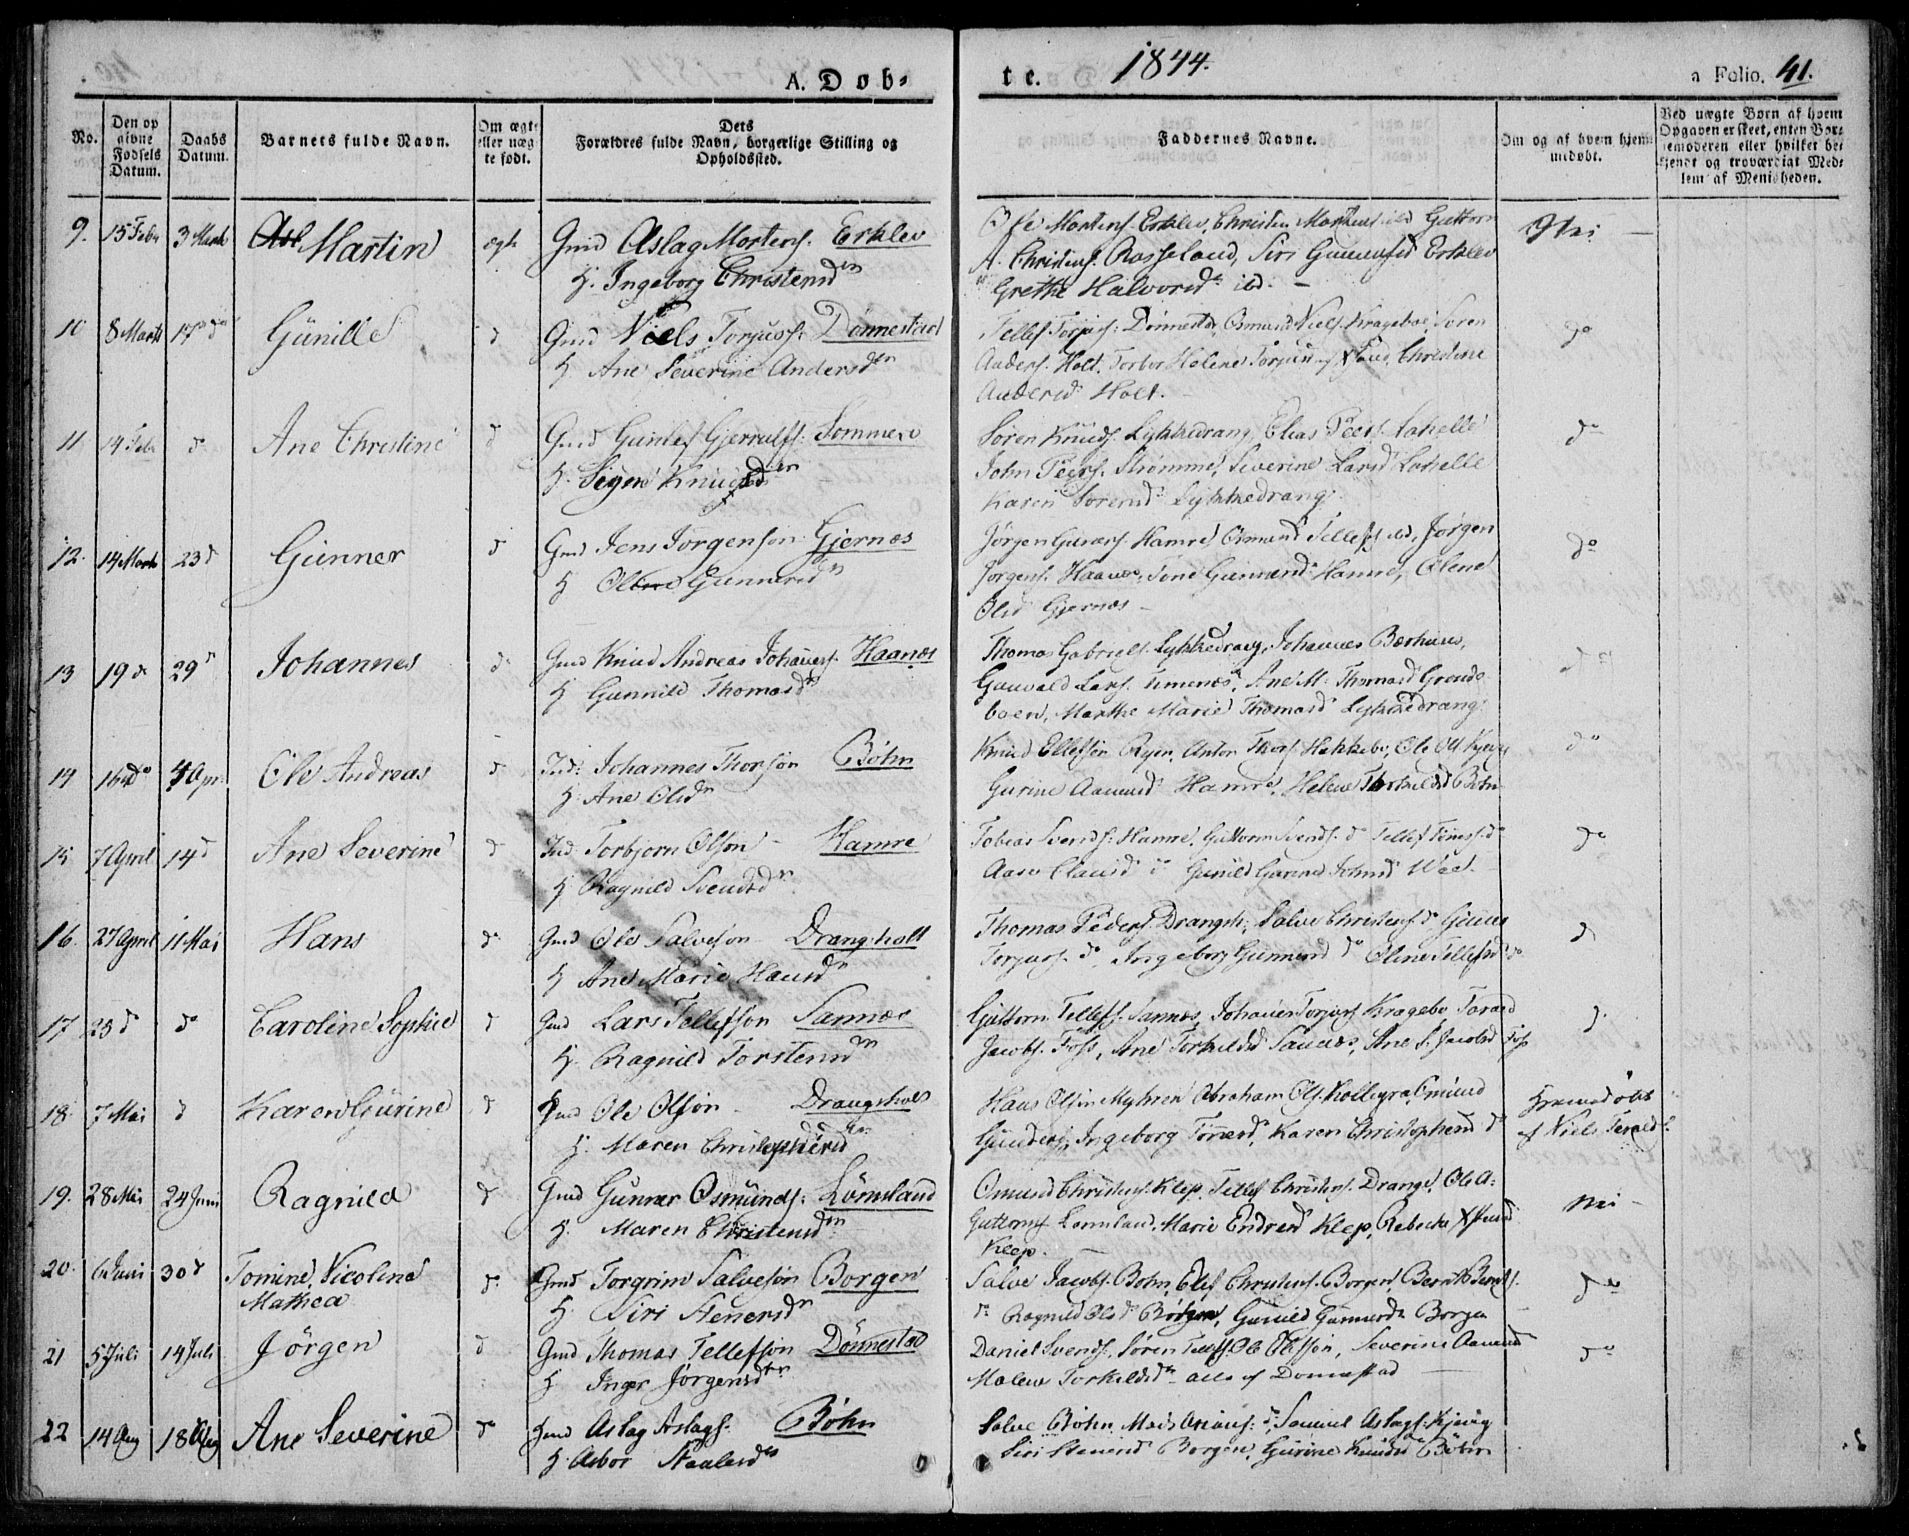 A. Døb-
te.
1844.
a Folio. 41.
No.
Den op
givne
Fødsels
Datum.
Daabs
Datum.
Barnets fulde Navn.
Om ægte
eller uæg
te født.
Dets
Forældres fulde Navn, borgerlige Stilling og
Opholdssted.
Faddernes Navne.
Om og af hvem hjem-
medøbt.
Ved uægte Børn af hvem
Opgaven er skeet, enten Bar-
nemoderen eller hvilket be-
kjendt og troværdigt Med-
lem af Menigheden.
9. 15 Febr 3 Marts Martin ægte Gmd Aslag Mortens. Erklev
H. Ingeborg Christensd
Mortens. Erklev, Christen Mortens. ibd Guttorm
A. Christens. Rosseland, Siri Gunnufsd Erklev
Grethe Halvorsd ibd. -
Nei
10 8 Marts 17 do Gunille d Gmd Niels Torjuss: Dønnestad
H Ane Severine Andersdtr
Tellef Torjus: Dønnestad, Osmund Niels. Kragebo, Søren
Anders. Holt, Torbor Helene Christine
Andersd Holt.
do
11 14 Febr d Ane Christine d Gmd Gunlef Gjerrulfs: Sommero
H. Sigrid Knudsd
Søren Knuds. Lykkedrang Elias Peers. Lohelle
John Peers. Strømme, Severine Larsd Lohelle
Karen Sørensd Lykkedrang.
do
12. 14 Marts 23 d Gunner d Gmd Jens Jørgensøn Gjernes
H Gunnersd
Jørgen Hamre Osmund Tellefs. ibd, Jørgen
Jørgens. Haanes, Tone Gunnersd Hamre, Olene
Olsd Gjernes -
do
13 19 d 29 d Johannes d Gmd Knud Andreas Johannes. Haanes
H Gunnild Thomasd
Thomas Gabriels. Lykkedrang, Johannes
Gunvald Lars. Timenes, Ane M. Thomasd
boen, Marthe Marie Thomasd Lykkedrang.
do
14 16 do 4 Apr Ole Andreas d Ind: Johannes Thorsøn Bøhn
H. Ane Olsd
Knud Ellefsøn Ryen, Anton Thors. Hakkebo, Ole Ols. Kjevig
Gurine Aamundsd Hamre, Helene Torkildsd Bøhn
do
15 7 April 14 d Ane Severine d Ind. Torbjørn Olsøn - Hamre
H Ragnild Svendsd
Tobias Svends: Hamre, Guttorm Svends. do Tellef Tønnes. do
Aase Clausd do Gunild Gurine Johnsd Wee.
do
16. 27 April 11 Mai Hans d Gmd Ole Salvesøn - Drangsholt
H Ane Marie Hansd
Thomas Peders. Drangsh: Salve Christens. do Gunner
Torjus. do, Ingeborg Gunnersd do Oline Tellefsd do
d
17 25 d do Caroline Sophie d Gmd Lars Tellefsøn Sannes
H. Ragnild Torstensd
Guttorm Tellefs. Sannes, Johannes Torjus. Kragebo, Tarald
Jacobs. Foss, Ane Torkildsd Sannes, Ane S. Jacobsd Foss
d.
18. 7 Mai d Karen Gurine d Gmd Ole Olsøn - Drangsholt
H. Maren Christophersd
Hans Olsøn Myhren Abraham Ols. Osmund
Gunders. Ingeborg Tønnesd, Karen Christophersd do
Hjemmedøbt
af Niels Terald
19. 28 Mai 24 Juni Ragnild d Gmd Gunner Osmunds: Lømsland
H. Maren Christensd
Osmund Christens. Klep, Tellef Christens. Drange, Ole A:
Guttorms. Lømsland, Marie Endresd Klep, Rebecka
Klep. -
Nei -
20. 6 Juni 30 d Tomine Nicoline
Mathea
d Gmd Torgrim Salvesøn Borgen
H. Siri Stenersd
Salve Jacobs. Bøhn, Elef Christens. Borgen, Bernt Bernts.
do Ragnild Olsd Borgen, Gunild Gunnersd Borgen
do
21 5 Juli 14 Juli Jørgen d Gmd Thomas Tellefsøn Dønnestad
H Inger Jørgensd
Daniel Svends. Søren Tellefs. Ole Olssøn, Severine Aamunds
Malene Torkildsd alle af Dønnestad
do
22 14 Aug 18 Aug Ane Severine do Gmd Aslag Aslags. Bøhn
H. Asbor Staalesd
Salve Bøhn, Mads do, Samuel Aslags. Kjevig
Siri Stenersd Borgen, Gurine Knudsd Bøhn